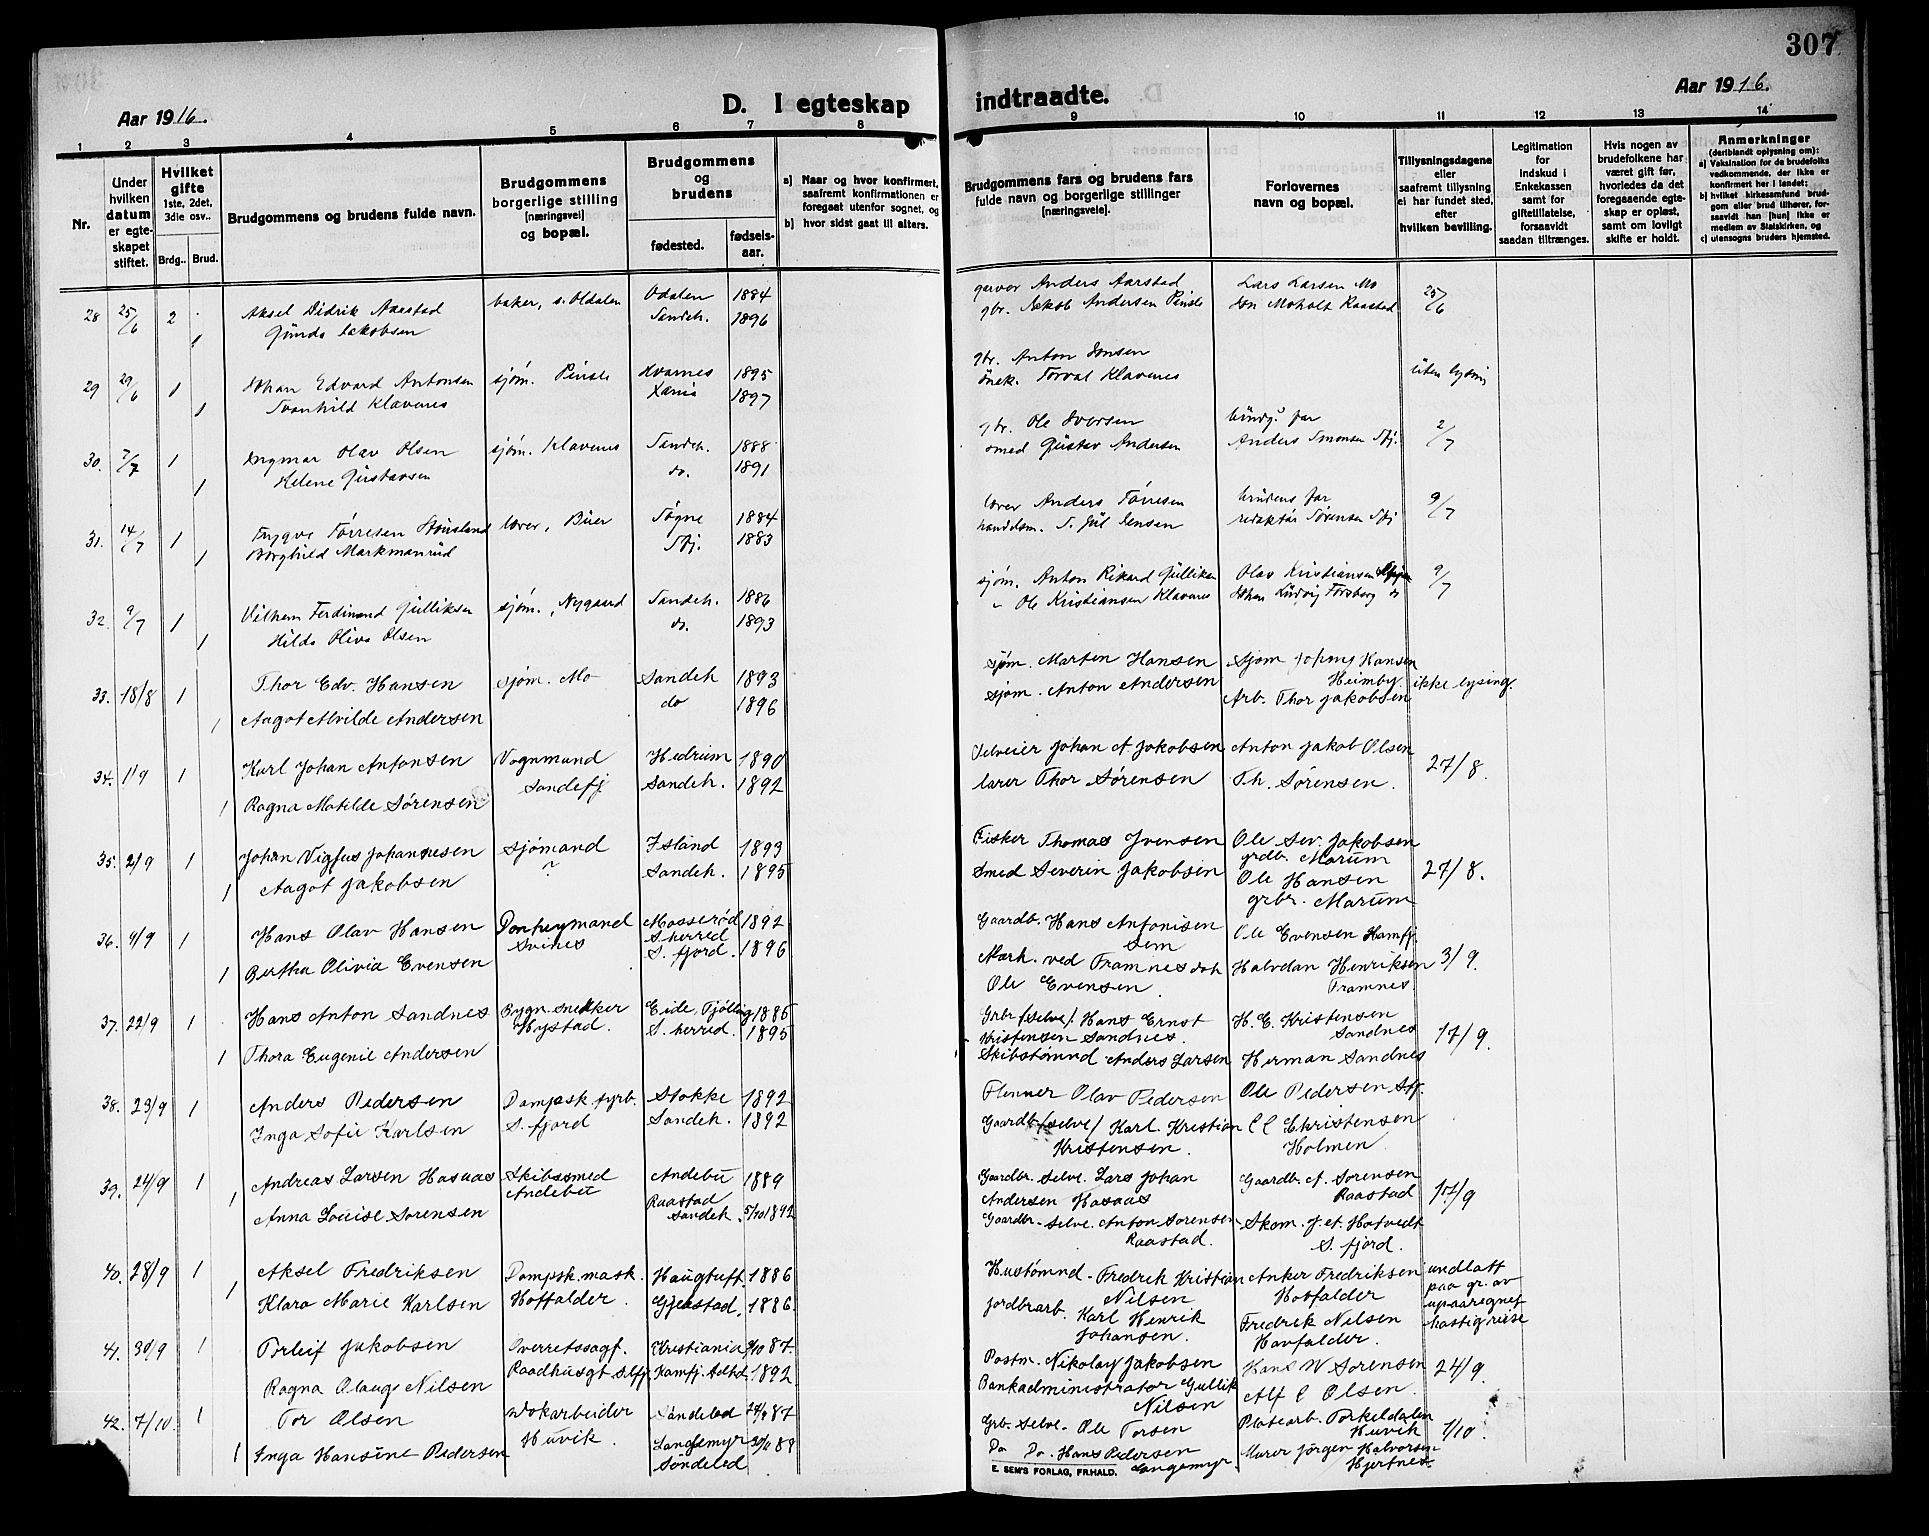 307
Aar 1916.
D. I egteskap indtraadte.
Aar 1916.
1 2 3 4 5 6 7 8 9 10 11 12 13 14
Nr.
Under hvilken datum er egteskapet stiftet.
Hvilket gifte 1ste, 2det, 3die osv..
Brdg.. Brud.
Brudgommens og brudens fulde navn.
Brudgommens borgerlige stilling [næringsvei] og bopæl.
Brudgommens og brudens
fødested.
fødselsaar.
a) Naar og hvor konfirmert, saafremt konfirmationen er foregaat utenfor sognet, og
b) hvor sidst gaat til alters.
Brudgommens fars og brudens fars fulde navn og borgerlige stillinger [næringsveie].
Forlovernes navn og bopæl.
Tillysningsdagene eller saafremt tillysning ei har fundet sted, efter hvilken bevilling.
Legitimation for indskud i Enkekassen samt for giftetillatelse, forsaavidt saadan tiltrænges.
Hvis nogen av brudefolkene har været gift før, hvorledes da det foregaaende egteskap er opløst, samt om lovligt skifte er holdt.
Anmerkninger (deriblandt oplysning om):
a) Vaksination for de brudefolks vedkommende, der ikke er konfirmert her i landet;
b) hvilket kirkesamfund brudgom eller brud tilhører, forsaavidt han [hun] ikke er medlem av Statskirken, og
c) utensogns bruders hjemsted.
28 25/6 2 Aksel Didrik Aarstad baker, s. Oldalen Odalen 1884 garver Anders Aarstad Lars Larsen Mo 25/6
1 Gunda Jakobsen Sandeh. 1896 gbr. Jakob Andersen Pindsle Moholt Raastad
29 29/6 1 Johan Edvard Antonsen sjøm. Pinsle Kvarnes 1895 gbr. Anton Jonsen uten lysing
1 Svanhild Klavenes Xania 1897 Torval Klavenes
30. 7/7 1 Ingmar Olav Olsen sjøm. Klavenes Sandeh. 1888 gbr. Ole Iversen brudg.s far 2/7
1 Helene Gustavsen do. 1891 smed Gustav Andersen Anders Simonsen Sfj.
31. 14/7 1 Trygve Tørresen Stousland lærer, Buer Søgne 1884 lærer Anders Tørresen brudens far 9/7
1 Borghild Markmanrud Sfj. 1883 handelsm. S. Jul Jensen redaktør Sørensen Sfj
32. 9/7 1 Vilhem Ferdinand Gulliksen sjøm., Nygaard Sandeh. 1886 sjøm. Anton Rikard Gulliksen Olav Kristiansen 9/7
1 Hilda Oliva Olsen do. 1893 - Ole Kristiansen Klavenes Johan Ludvig Forsberg do
33. 18/8 1 Thor Edv. Hansen sjøm. Mo Sandeh 1893 sjøm. Marten Hansen Sjøm Johans Hansen Heimby ikke lysing.
1 Aagot Alvilde Andersen do 1896 sjøm. Anton Andersen Arb. Thor Jakobsen
34. 1/9 1 Karl Johan Antonsen Vognmand Sandefj Hedrum 1890 Selveier Johan A Jakobsen Anton Jakob Olsen 27/8.
1 Ragna Matilde Sørensen Sandeh. 1892 lærer Thor Sørensen Th. Sørensen.
35. 2/9 1 Johan Vigfus Johannesen Sjømand ? Island 1893 Fisker Thomas Jvensen Ole Sev. Jakobsen grdb. Marum 27/8.
1 Aagot Jakobsen Sandeh. 1895 Smed Severin Jakobsen Ole Hansen grbr. Marum
36. 9/9 1 Hans Olav Hansen Donkeymand Svines Mosserød S.herred 1892 Gaardb. Hans Antonisen Sem Ole Evensen Kamfj. 3/9.
1 Bertha Olivia Evensen S. fjord. 1896 Mark. ved Framnes dok Ole Evensen. Halvdan Henriksen Framnes.
37. 22/9 1 Hans Anton Sandnes Bygn. snekker Hystad. Eide, Tjølling 1886 Grbr /selve/. Hans Ernst Kristensen Sandnes. H. E. Kristensen Sandnes 17/9.
1 Thora Eugenie Andersen S. herred. 1895 Skibstømnd Anders Larsen Herman Sandnes
38. 23/9 1 Anders Pedersen Dampsk. fyrb. S. fjord Stokke 1892 Flenner Olav Pedersen Ole Pedersen Sfj.
Inga Sofie Karlsen Sandeh. 1892 Gaardb /selve/ Karl. Kristian Kristensen. C C Christensen Holmen.
39. 24/9 1 Andreas Larsen Hasaas Skibssmed Andebu Andebu 1889 Gaardbr. Selve. Lars Johan Andersen Hasaas Gaardb. A. Sørensen Raastad 17/9
1 Anna Louise Sørensen Raastad Sandeh. 5/10 1892 Gaardbr.- Selve. Anton Sørensen Raastad. Skom. J. A. Hotvedt S. fjord.
40. 28/9 1 Aksel Fredriksen Dampsk. mask. Hoffalder. Haugtuft 1886 Hustømnd - Fredrik Kristian Nilsen Anker Fredriksen Hovfalder undlatt paa gr. av upaaregnet hastig reise
1 Klara Marie Karlsen Gjerstad. 1886 jordbrarb. Karl Henrik Johansen. Fredrik Nilsen Hovfalder.
41. 30/9 1 Torleif Jakobsen Overretssagf. Raadhusgt Sfj. Kristiania /10 87 Postm. Nikolay Jakobsen Hans W Sørensen 24/9.
Ragna Olauge Nilsen Kamfj. 1892 Bankadministrator Gullik Nilsen Alf C Olsen.
42. 7/10. 1 Tor Olsen Dokarbeider Huvik. Søndeled 24/9 87 Grb- Selve. Ole Torsen Platearb. Torkeldalen Huvik 1/10.
1 Inga Hansine Pedersen Langemyr Søndeled 88 Do Do. Hans Pedersen Langemyr. Murer Jørgen Halvorsen Hjertnes.
E. SEM'S FORLAG, FR.HALD.